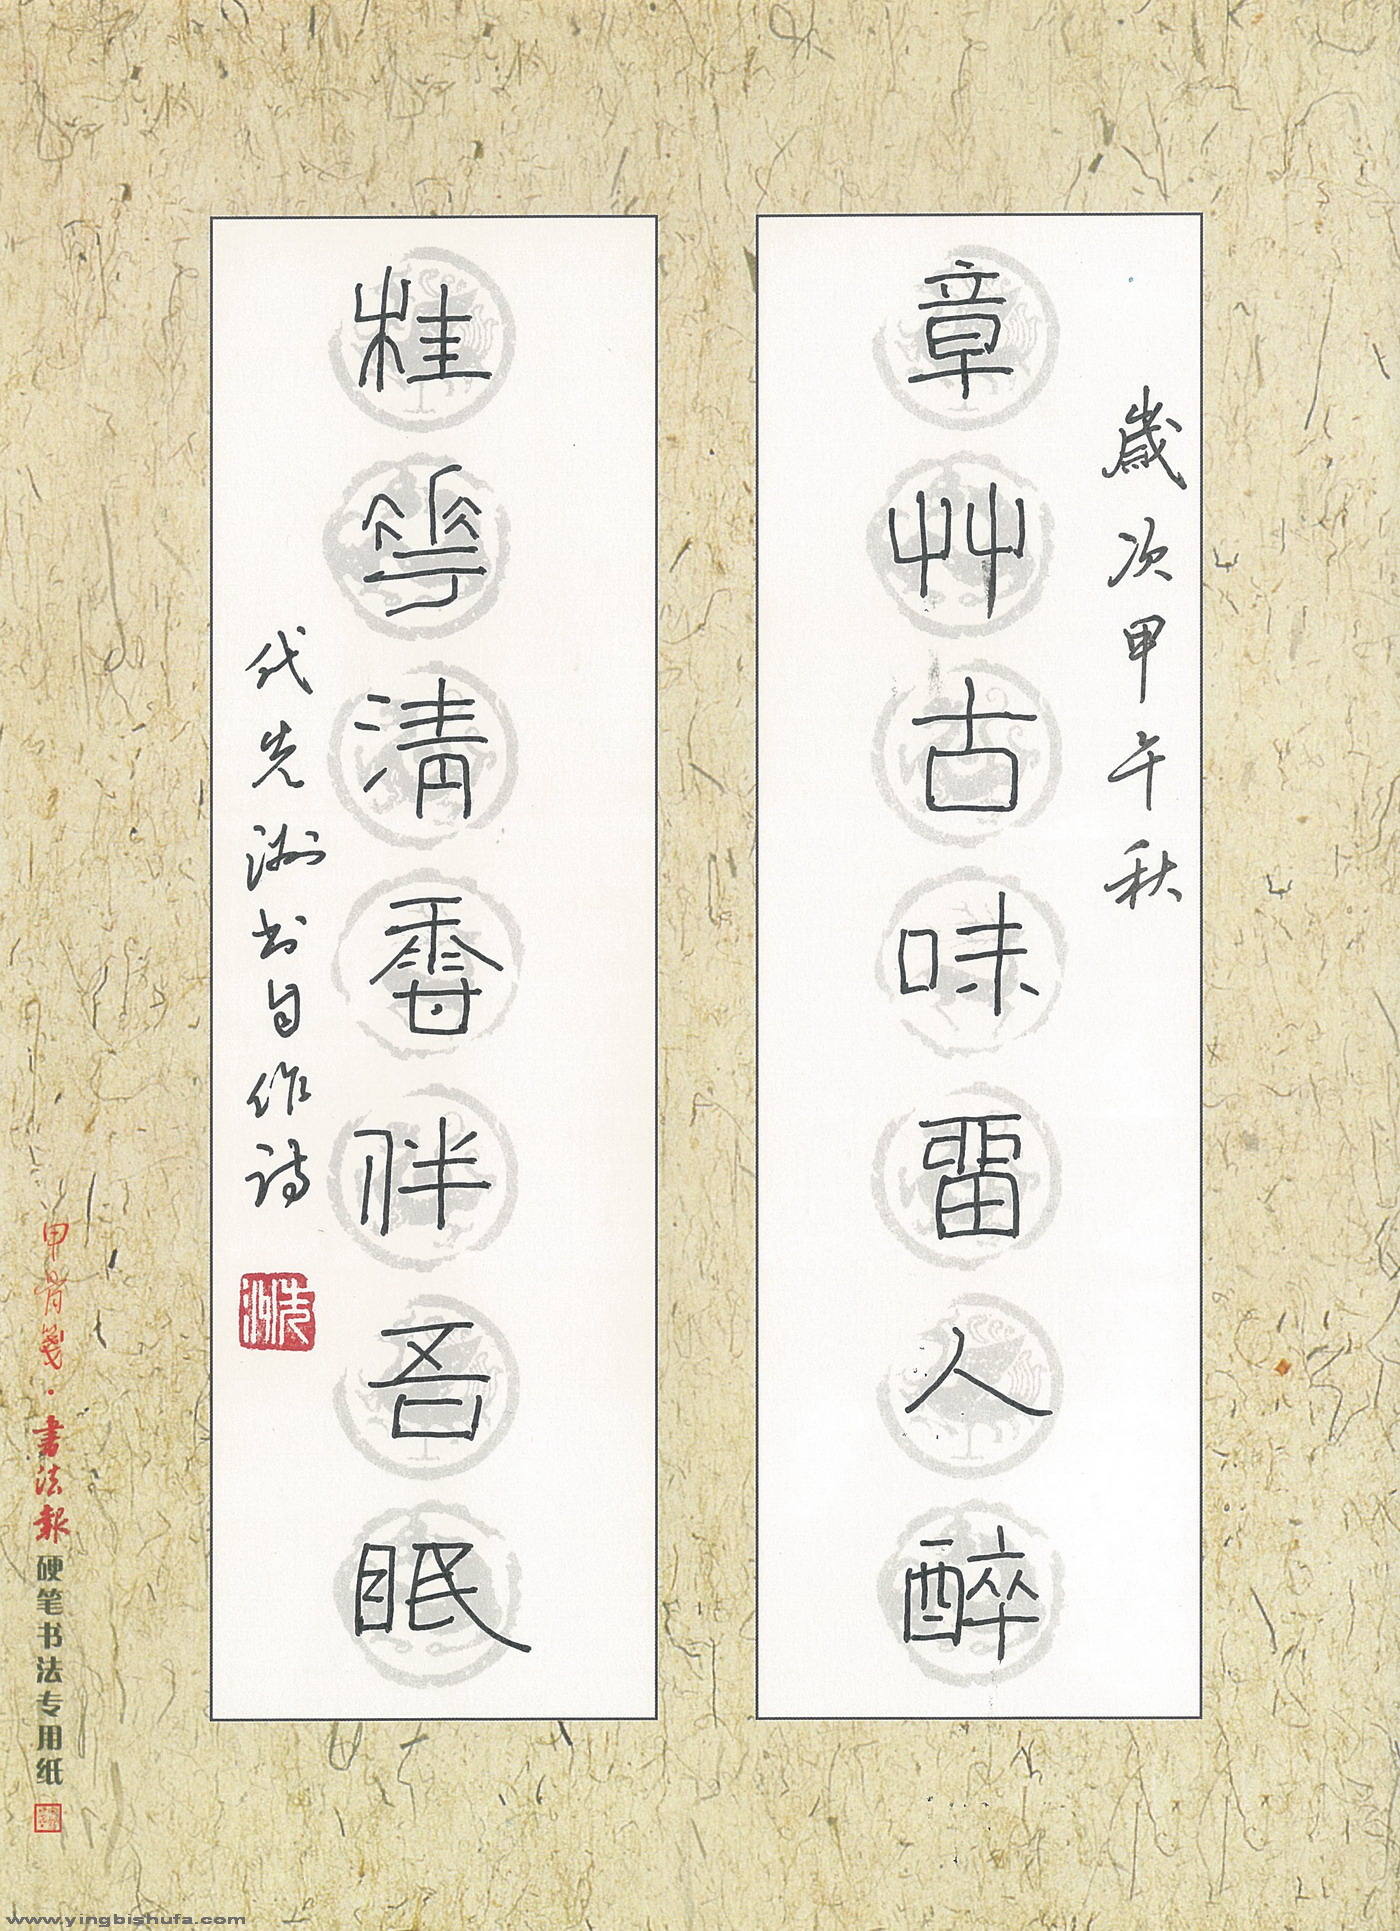 歲次甲午秋
章艸古味畱人醉
桂花清香伴吾眠
代先洲书自作诗
先洲
甲骨箋·書法報硬笔书法专用纸
www.yingbishufa.com